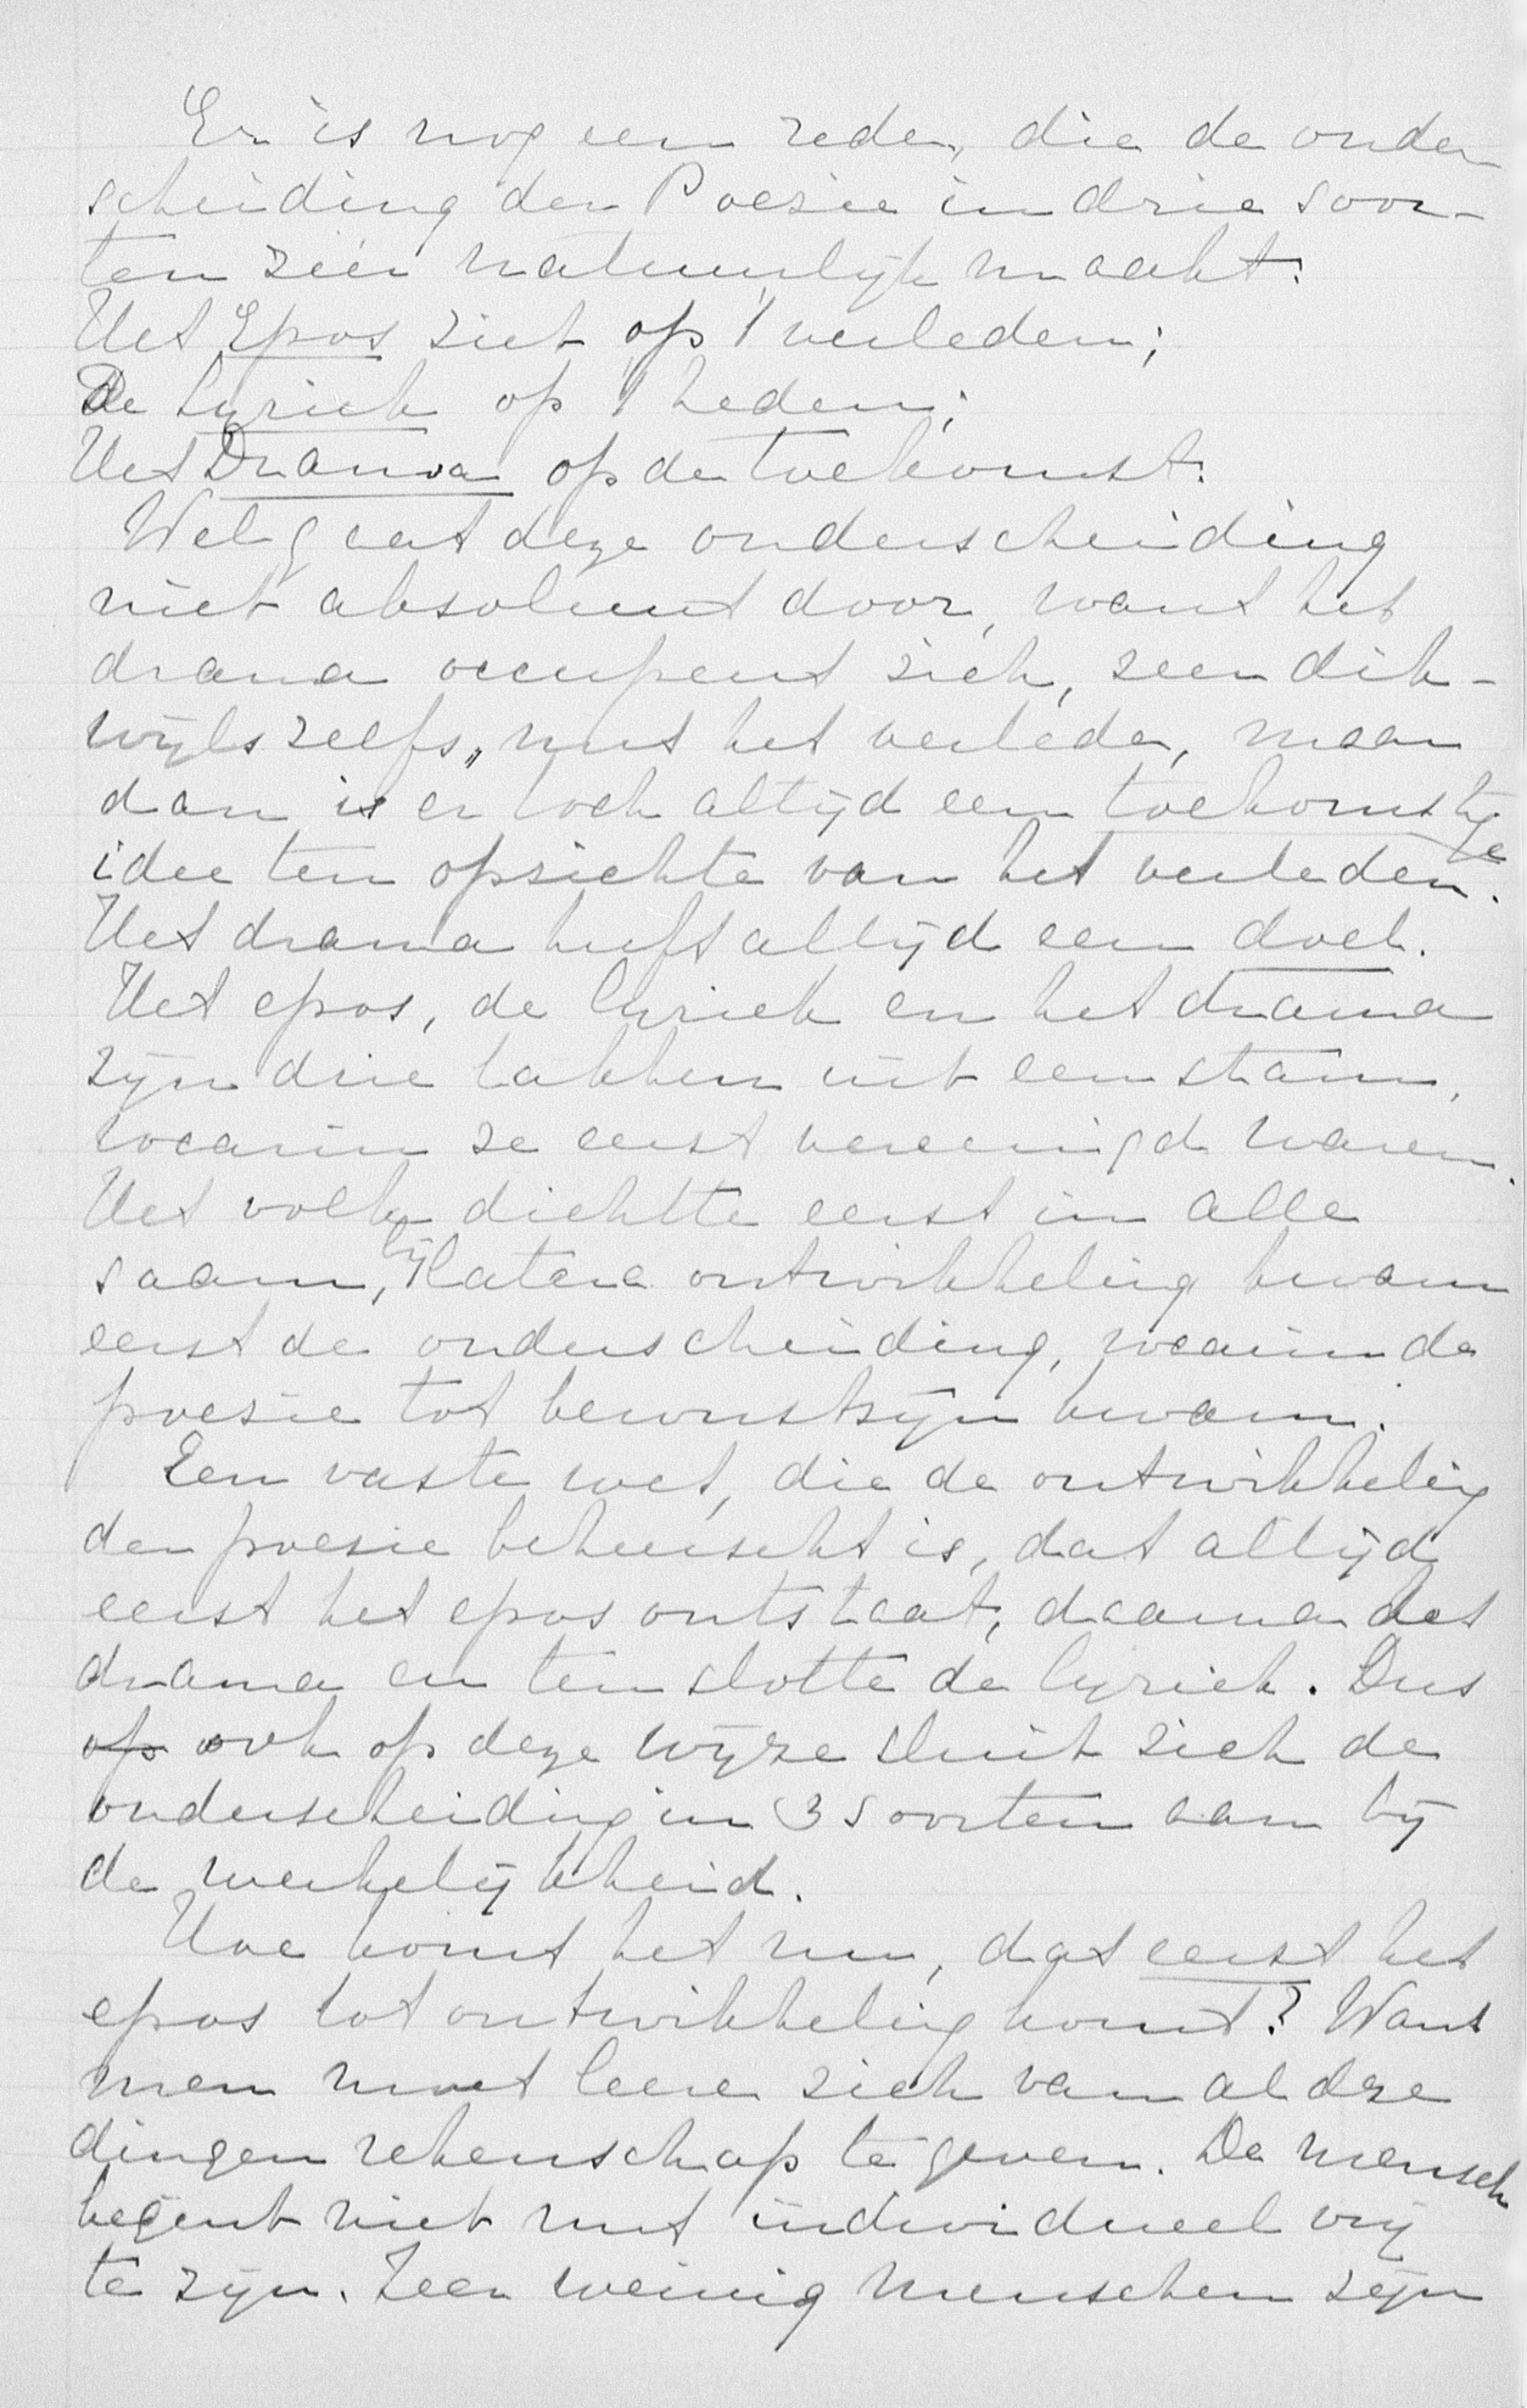 Er is nog een reden, die de onder-
scheiding der Poesie in drie soor-
ten zéér natuurlijk maakt:
Het Epos ziet op 't verleden;
De Lyriek op 't heden;
Het Drama op de toekomst.
Wel gaat deze onderscheiding
niet absoluut door, want het
drama occupeert zich, zeer dik-
wijls zelfs, met het verleden, maar
dan is er toch altijd een toekomstige
idee ten opzichte van het verleden.
Het drama heeft altijd een doel.
Het epos, de lyriek en het drama
zijn drie takken uit een stam,
waarin ze eerst vereenigd waren.
Het volk dichtte eerst in alle
saam, bij latere ontwikkeling kwam
eerst de onderscheiding, waarin de
poesie tot bewustzijn kwam.
Een vaste wet, die de ontwikkeling
der poesie beheerscht is, dat altijd
eerst het epos ontstaat, daarna het
drama en ten slotte de lyriek. Dus
op ook op deze wijze sluit zich de
onderscheiding in 3 soorten aan bij
de werkelijkheid.
Hoe komt het nu, dat eerst het
epos tot ontwikkeling komt? Want
men moet leeren zich van al deze
dingen rekenschap te geven. De mensch
begint niet met individueel vrij
te zijn. Zeer weinig menschen zijn